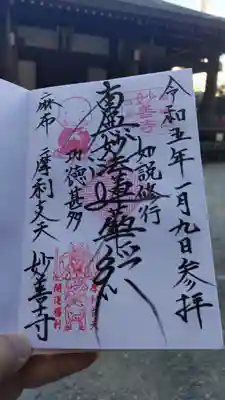 令和五年一月九日参拝
妙善寺
如説修行
南無妙法蓮華経
功徳甚多
麻布 摩利支天 妙善寺
開運勝利